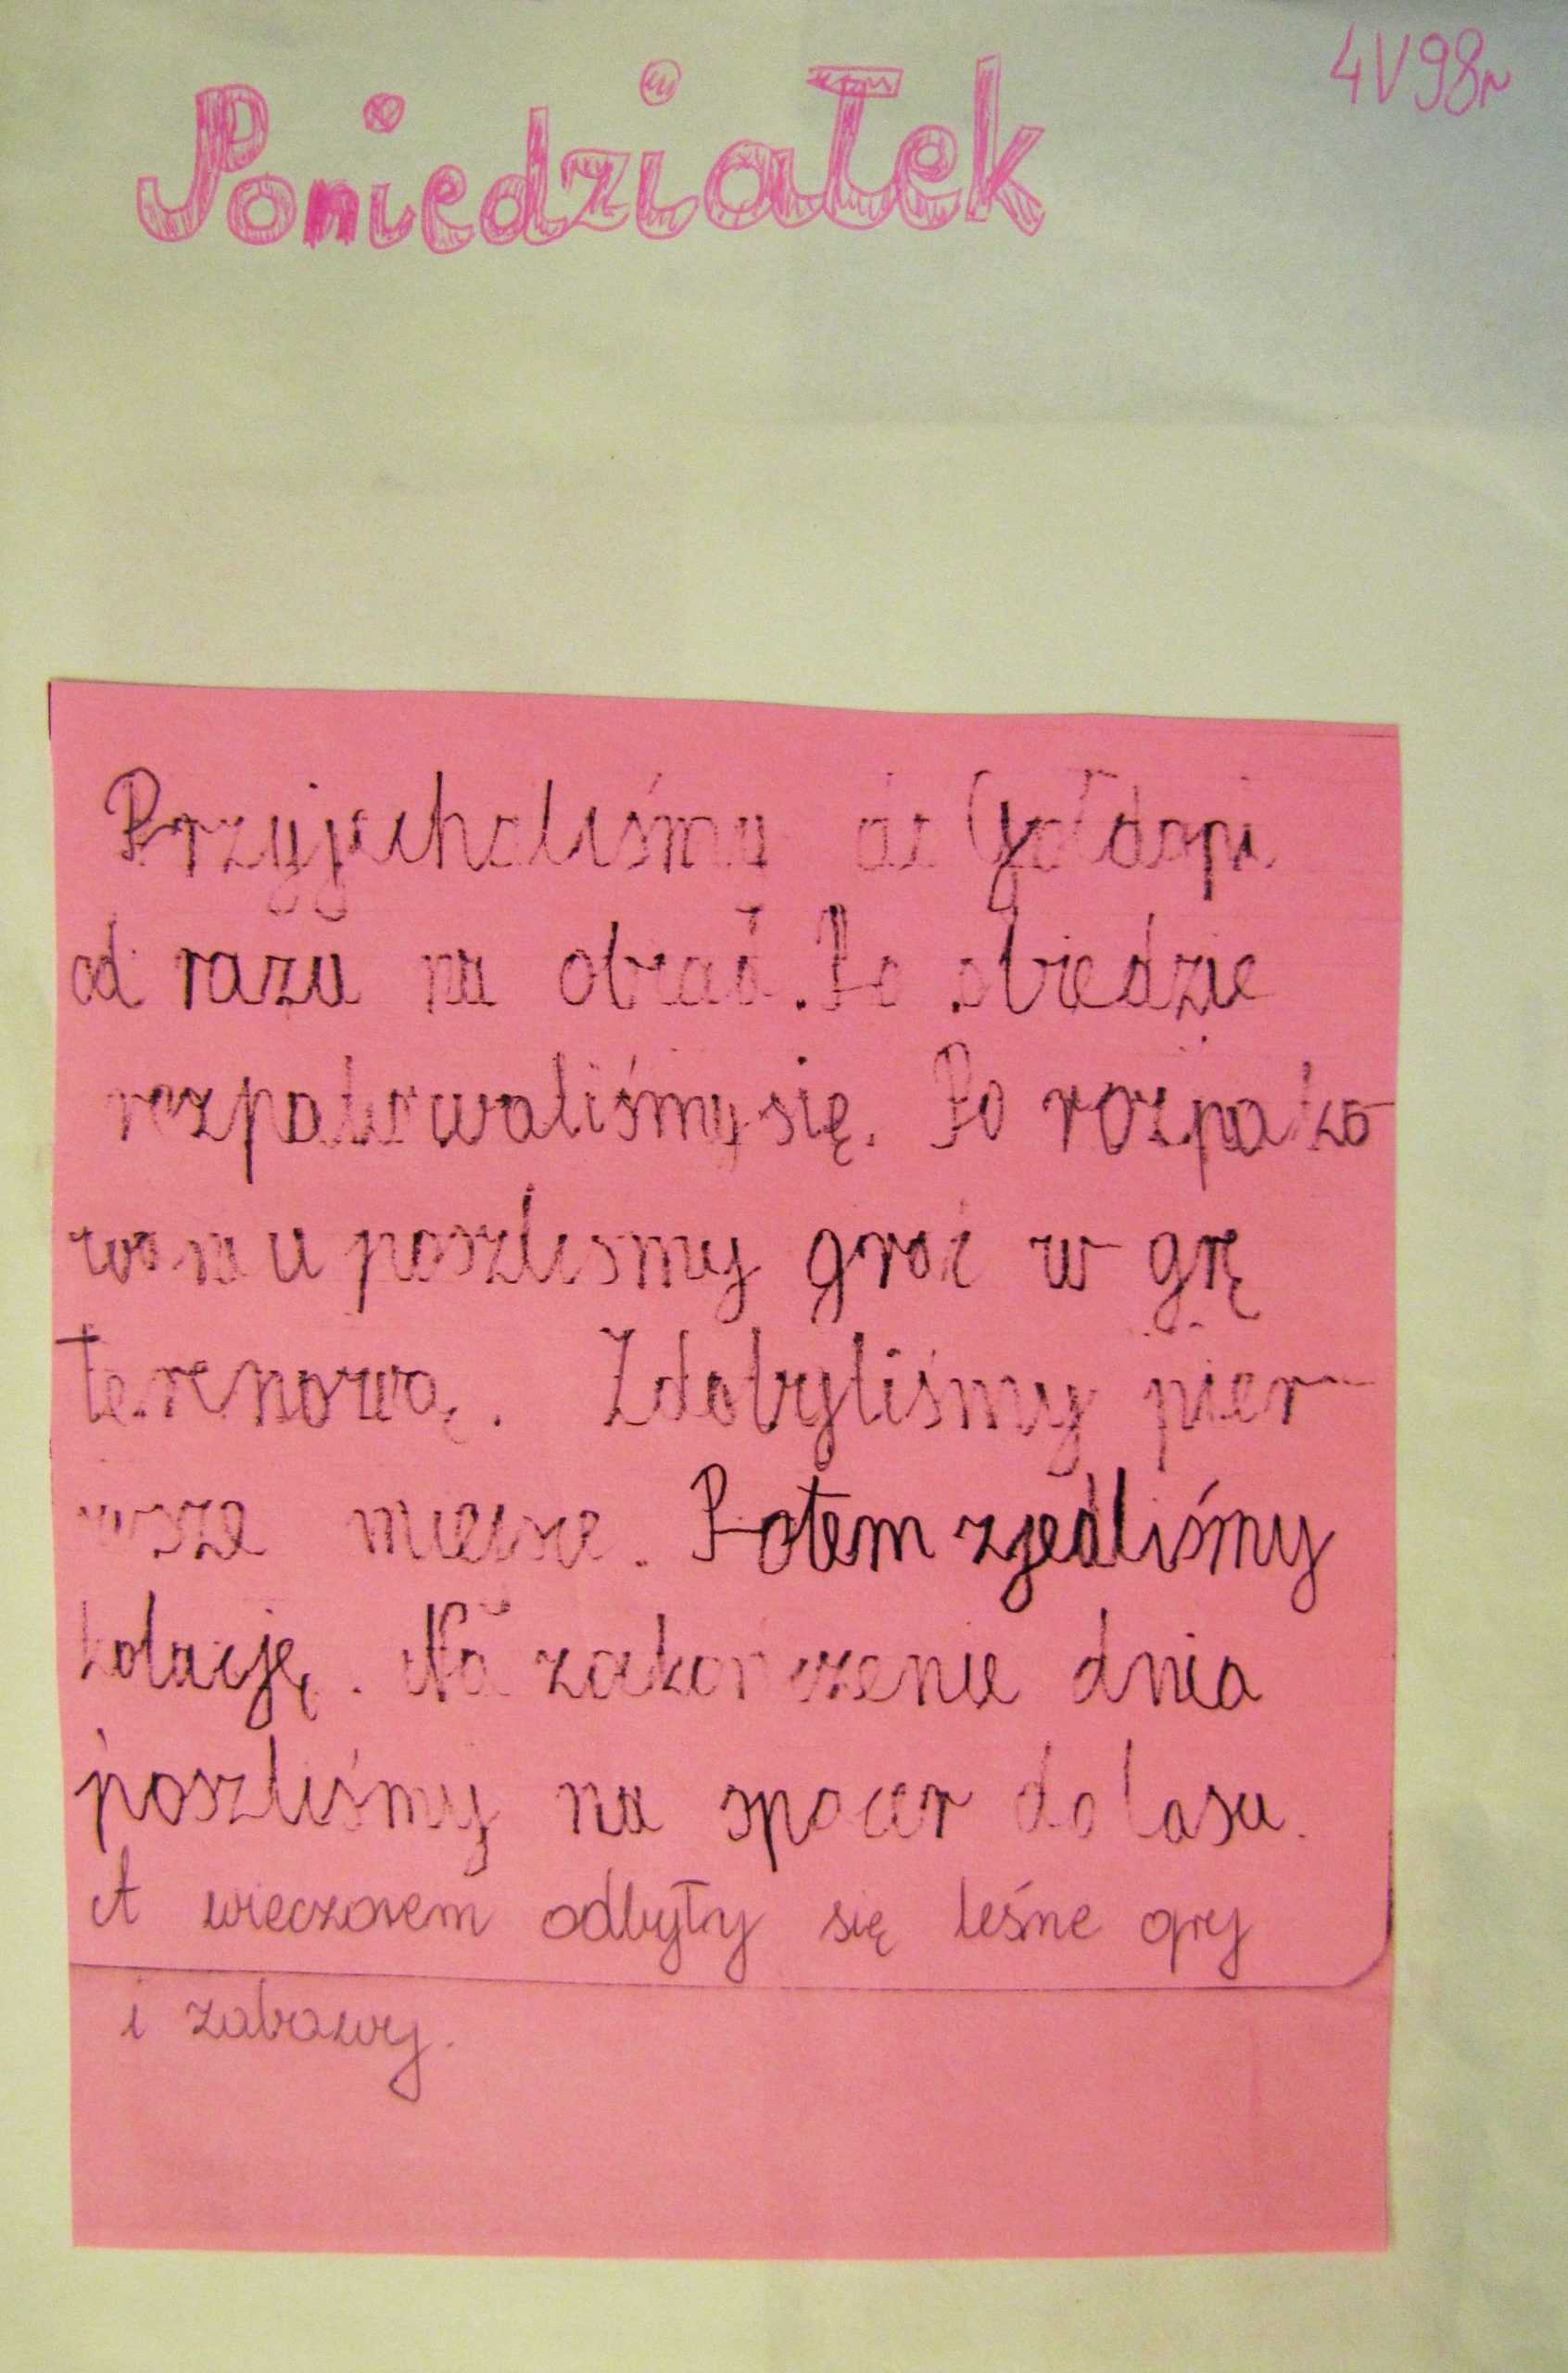 4 V 98r
Poniedziałek
Przyjechaliśmy do Gołdapi
od razu na obiad. Po obiedzie
rozpakowaliśmy się. Po rozpako
waniu poszliśmy grać w grę
terenową. Zdobyliśmy pier-
wsze miejsce. Potem zjedliśmy
kolację. Na zakończenie dnia
poszliśmy na spacer do lasu.
A wieczorem odbyły się leśne gry
i zabawy.